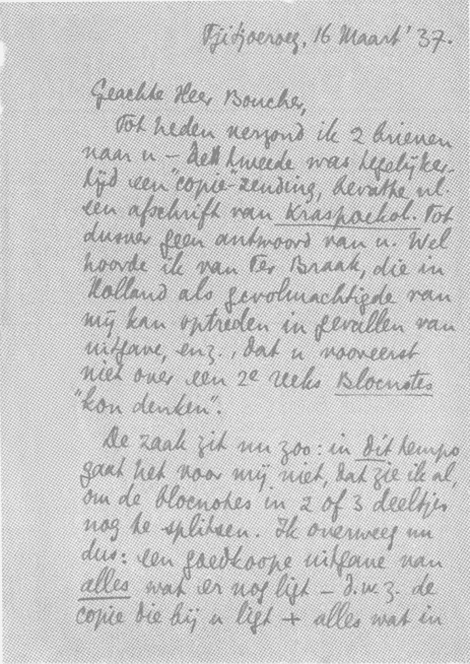 Tjitjoeroeg, 16 Maart '37.
Geachte Heer Boucher,
Tot heden verzond ik 2 brieven
naar u – de tweede was tegelijker-
tijd een "copie"-zending, bevatte nl.
een afschrift van Kraspoekol. Tot
dusver geen antwoord van u. Wel
hoorde ik van Ter Braak, die in
Holland als gevolmachtigde van
mij kan optreden in gevallen van
uitgave, enz., dat u vooreerst
niet over een 2e reeks Blocnotes
"kon denken".
De zaak zit nu zoo: in dit tempo
gaat het voor mij niet, dat zie ik al,
om de blocnotes in 2 of 3 deeltjes
nog te splitsen. Ik overweeg nu
dus: een goedkoope uitgave van
alles wat er nog ligt – d.w.z. de
copie die bij u ligt + alles wat in